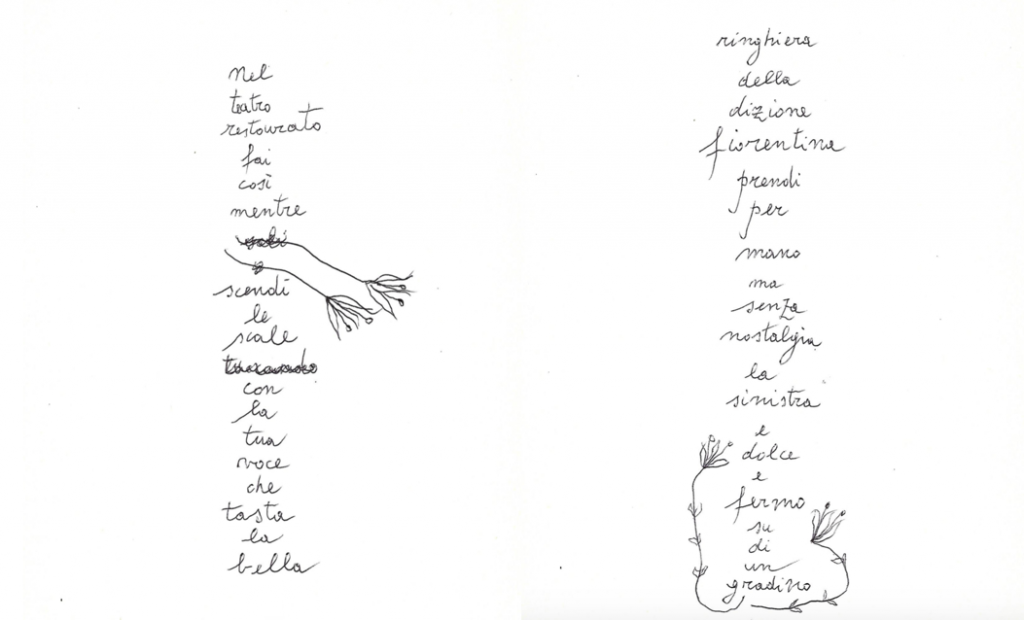 nel
teatro
restaurato
fai
così
mentre
scendi
le
scale
con
la
tua
voce
che
tasta
la
bella
ringhiera
della
dizione
fiorentina
prendi
per
mano
ma
senza
nostalgia
la
sinistra
e
dolce
e
fermo
su
di
un
gradino